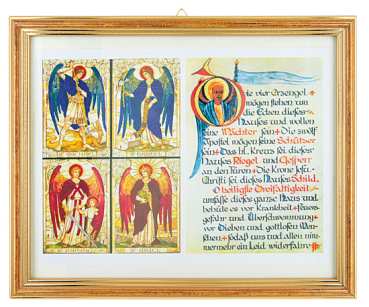 Die vier Erzengel
mögen stehen um
die Ecken dieses
Hauses und wollen
seine Wächter sein + Die zwölf
Apostel mögen seine Schützer
sein + Das hl. Kreuz sei dieses
Hauses Riegel und Gesperr
an den Türen + Die Krone Jesu
Christi sei dieses Hauses Schild.
O heiligste Dreifaltigkeit
umfasse dieses ganze Haus und
behüte es vor Krankheit + Feuers-
gefahr und Überschwemmung +
vor Dieben und gottlosen Men-
schen + sodaß uns und allen nim-
mermehr ein Leid widerfahre